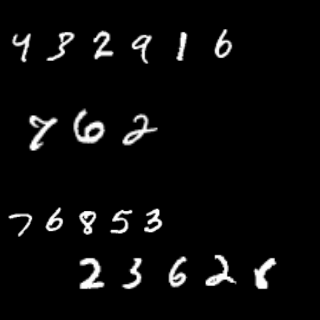 432916
762
76853
23628